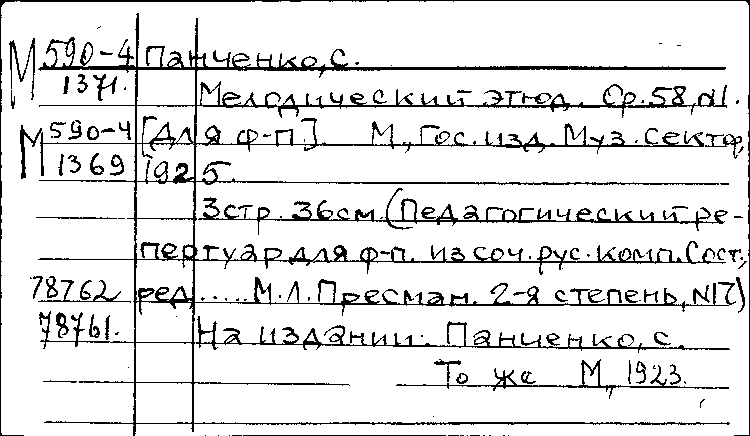 М 590-4 Панченко, С.
1371. Мелодический этюд. Ор.58,N1.
М 590-4 [Для ф-п.]. М., Гос. изд. Муз. сектор,
1369 1925.
3 стр. 36 см. (Педагогический ре-
пертуар для ф-п. из соч. рус. комп. Сост.,
78762 ред..... М.Л. Пресман. 2-я степень, N17)
78761. На издании: Панченко, С.
То же М., 1923.